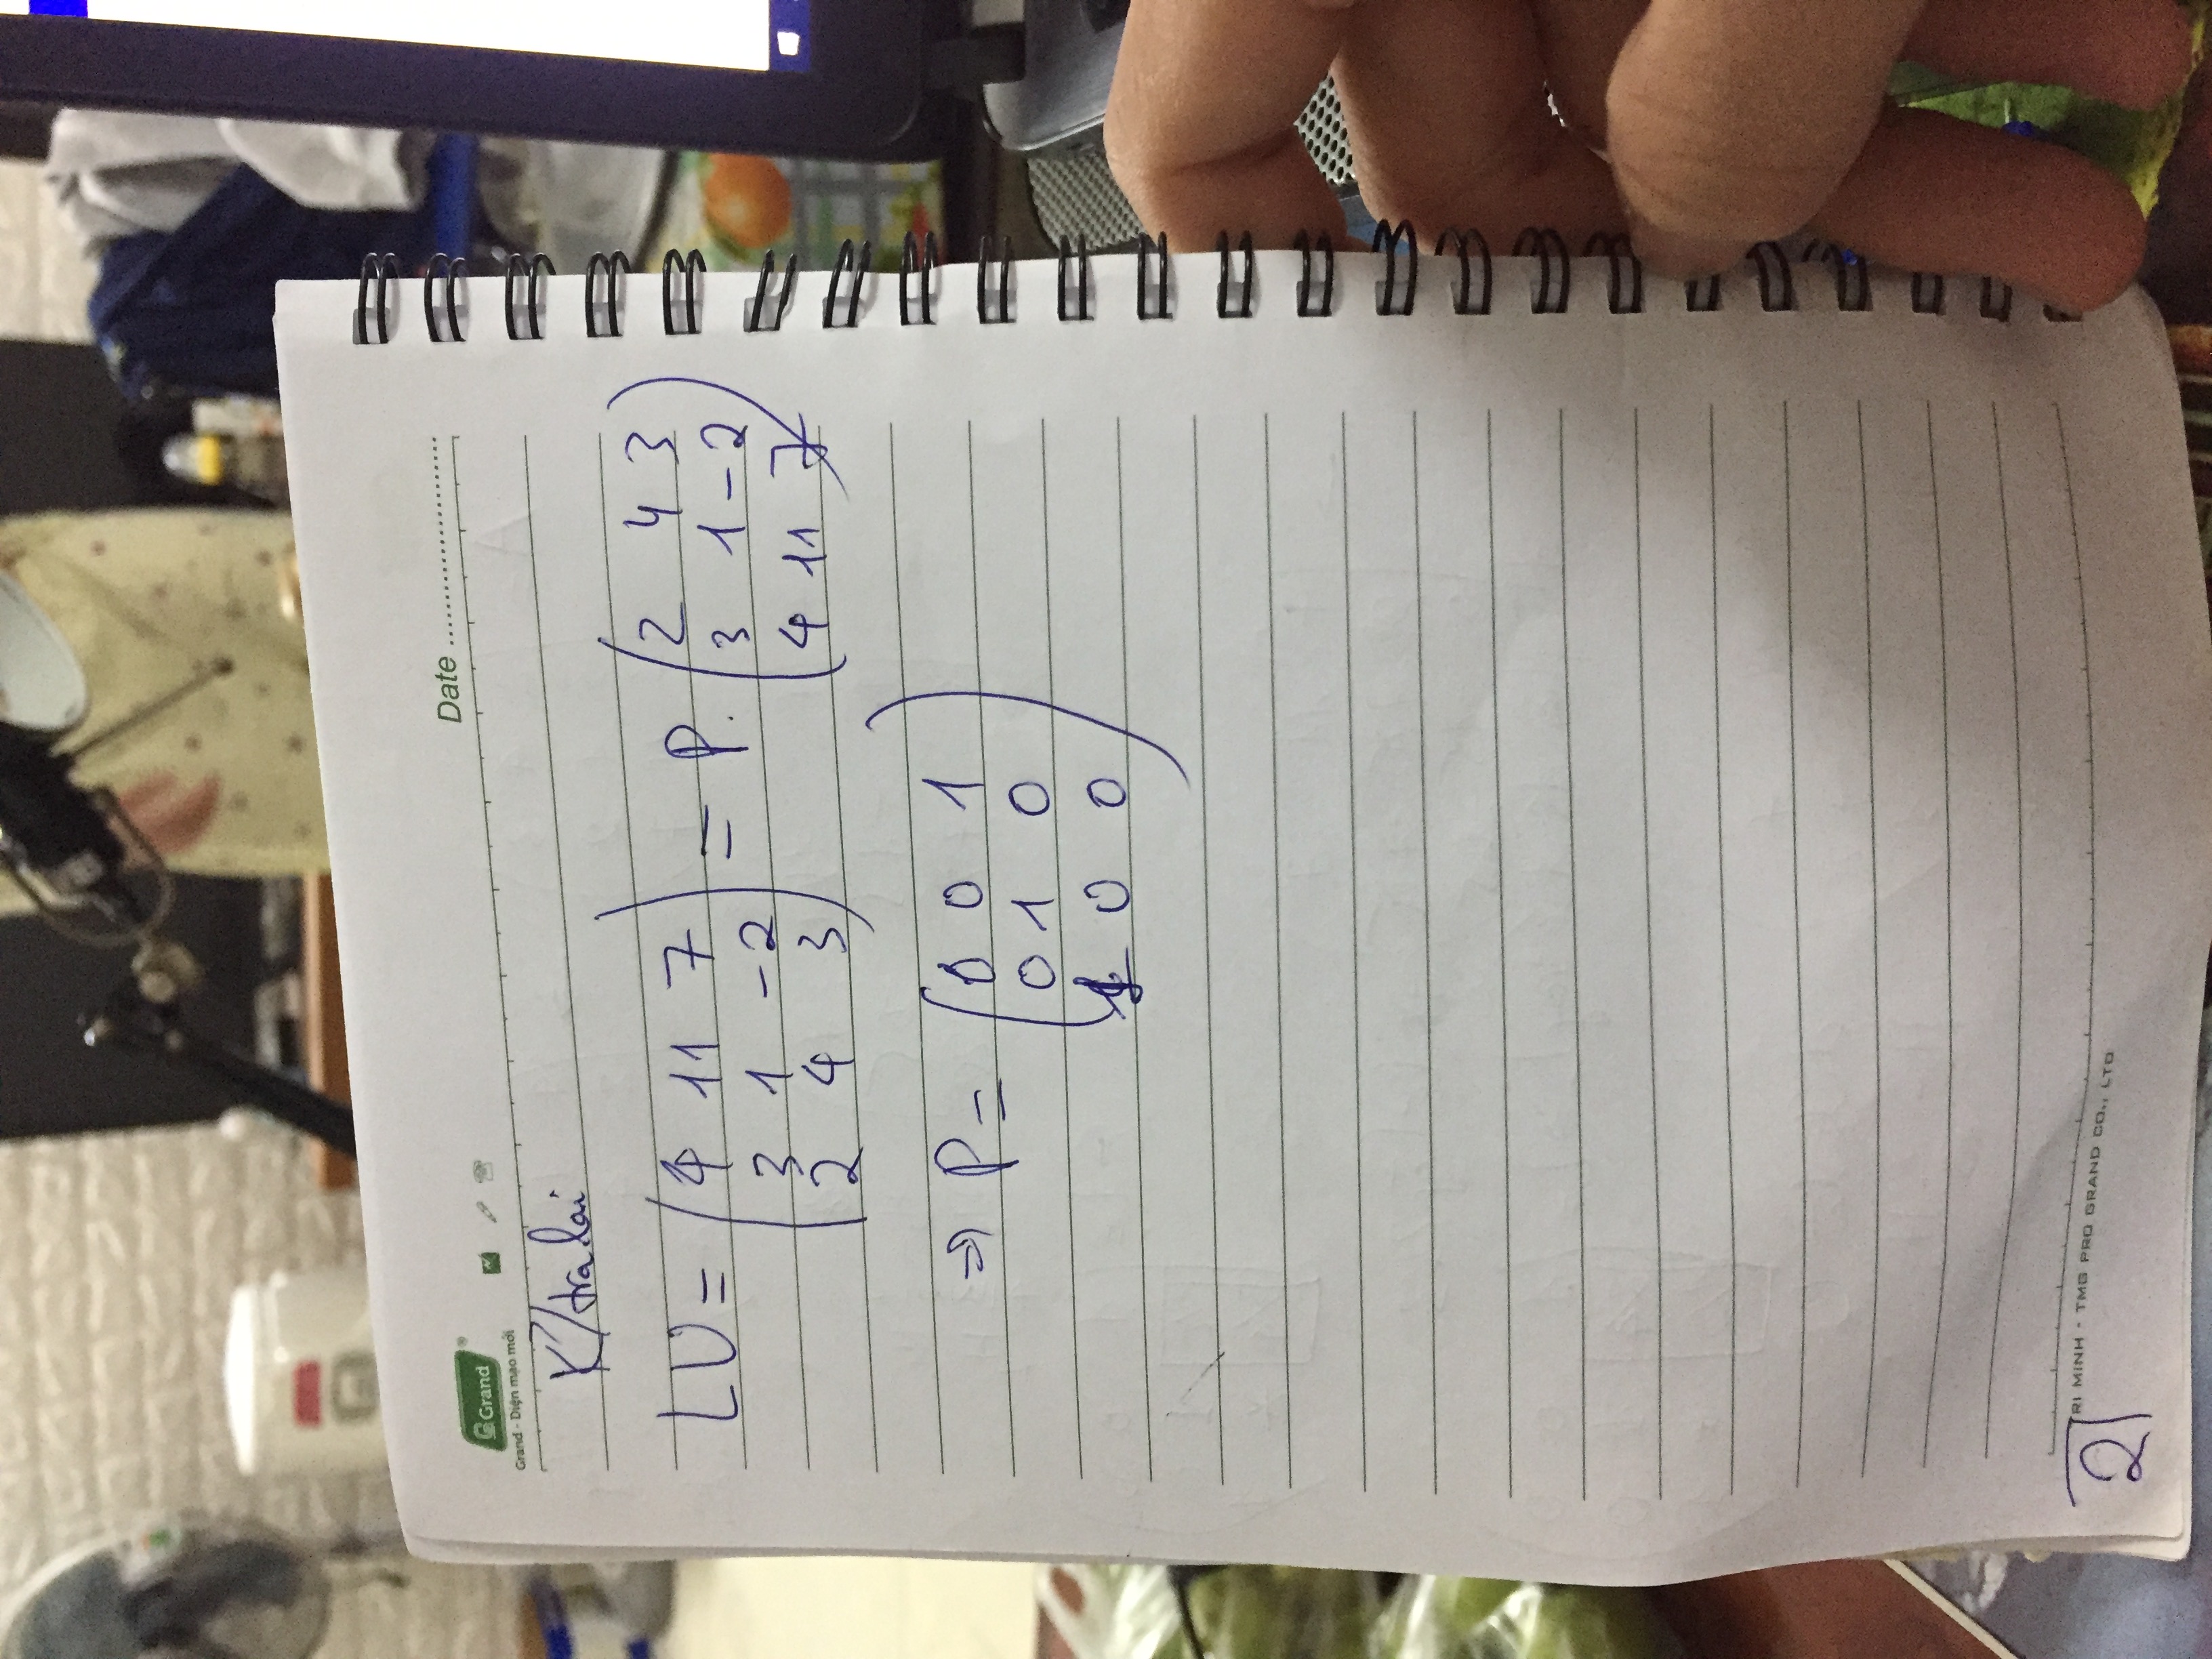 Date
Grand
Grand - Diện mạo mới
K/tra lại
LU = ( 4 11 7 ) = P. ( 2 4 3 )
( 3 1 -2 ) ( 3 1 -2 )
( 2 4 3 ) ( 4 11 7 )
⇒ P = ( 0 0 1 )
( 0 1 0 )
( 1 0 0 )
RI MINH - TMG PRO GRAND CO., LTD
2